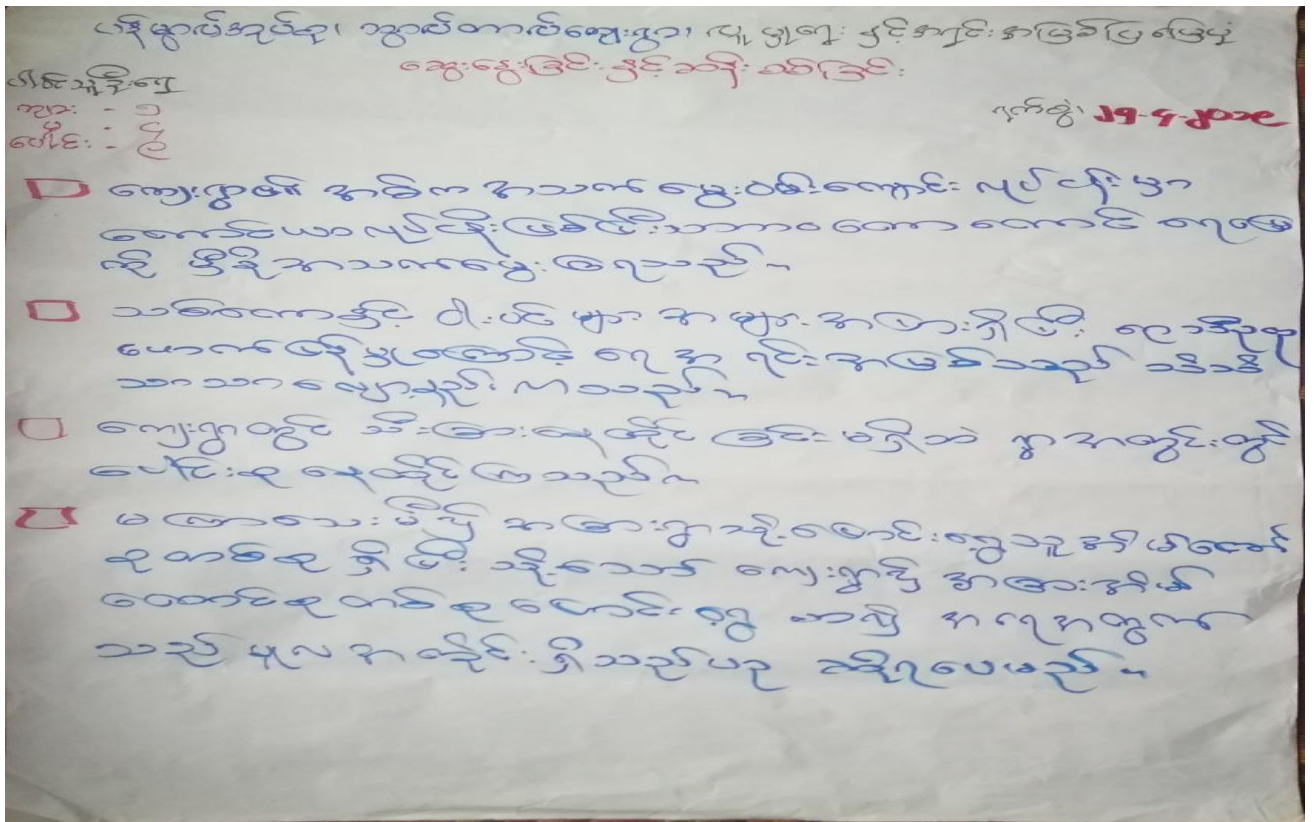 ဟန်မွာလ်အုပ်စု၊ ဘွာလ်တာလ်ကျေးရွာ၊ လူမှုရေး နှင့်အရင်းအမြစ်ပြမြေပုံ
ဆွေးနွေးခြင်း နှင့်ဆန်းစစ်ခြင်း
ပါဝင်သူဦးရေ
ကျား - ၁
မ -
ပေါင်း -
ရက်စွဲ၊ ၂၅-၄-၂၀၁၉
ကျေးရွာ၏ အဓိက အသက်မွေးဝမ်းကျောင်း လုပ်ငန်း မှာ
တောင်ယာလုပ်ငန်းဖြစ်ပြီး သဘာဝတောတောင် ရေမြေ
ကို မှီခိုအသက်မွေးကြရသည်။
သစ်တောနှင့် ဝါးပင် များ အများအပြားရှိပြီး
ယောက်ဖန်မှုကြောင့် ရေအရင်းအမြစ်သည် သိသိ
သာသာ လျော့နည်းလာသည်။
ကျေးရွာတွင် သီးခြားနေထိုင် ခြင်းမရှိဘဲ ရွာအတွင်းတွင်
ပေါင်းစုနေထိုင်ကြသည်။
မကြာသေးမီမှ အခြားရွာသို့ပြောင်းရွေ့သူ အိမ်ထောင်
စုတစ်စု ရှိပြီး သို့သော် ကျေးရွာသို့ အခြားအိမ်
ထောင်စုတစ်စုပြောင်းရွေ့ လာ၍ အရေအတွက်
သည် မူလအတိုင်းရှိသည်ဟု ဆိုရပေမည်။